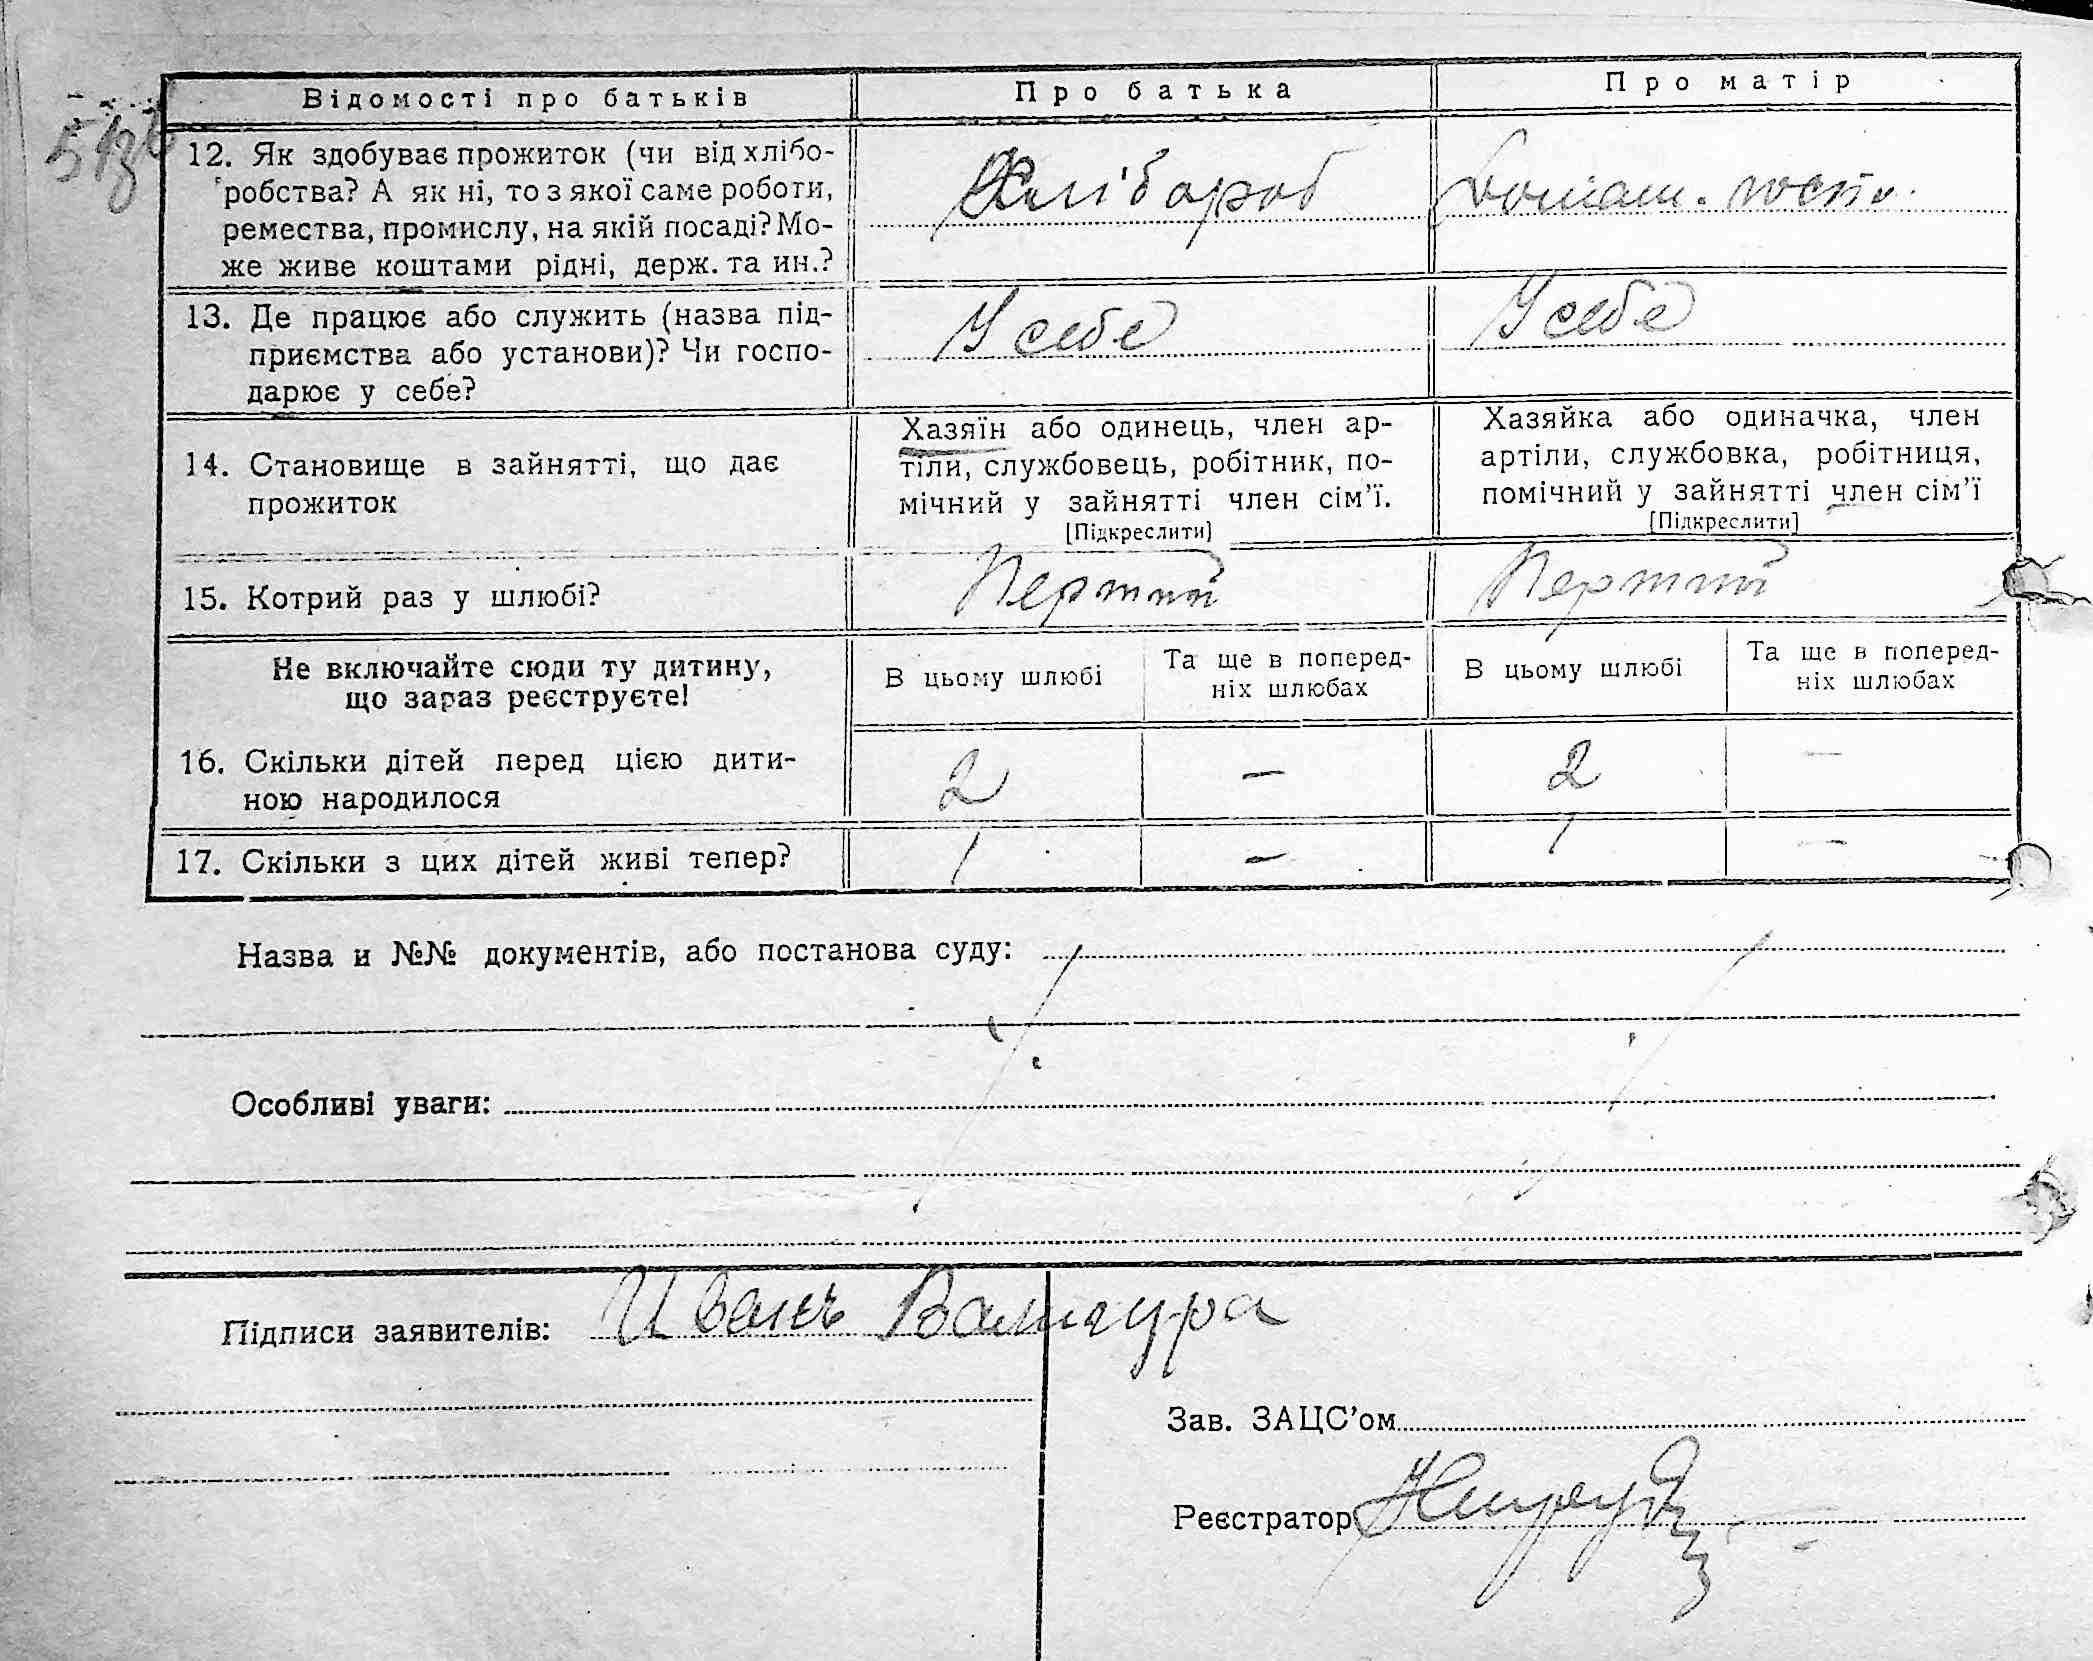 Відомості про батьків
Про батька
Про матір
12. Як здобуває прожиток (чи від хлібо-
робства? А як ні, то з якої саме роботи,
ремества, промислу, на якій посаді? Мо-
же живе коштами рідні, держ. та ин.?
Хлібороб
Домаш. госп.
13. Де працює або служить (назва під-
приємства або установи)? Чи госпо-
дарює у себе?
У себе
У себе
14. Становище в зайнятті, що дає
прожиток
Хазяїн або одинець, член ар-
тіли, службовець, робітник, по-
мічний у зайнятті член сім'ї.
[Підкреслити]
Хазяйка або одиначка, член
артіли, службовка, робітниця,
помічний у зайнятті член сім'ї
[Підкреслити]
15. Котрий раз у шлюбі?
Перший
Перший
Не включайте сюди ту дитину,
що зараз реєструєте!
В цьому шлюбі
Та ще в поперед-
ніх шлюбах
В цьому шлюбі
Та ще в поперед-
ніх шлюбах
16. Скільки дітей перед цією дити-
ною народилося
2
–
2
–
17. Скільки з цих дітей живі тепер?
1
–
1
–
Назва и №№ документів, або постанова суду:
Особливі уваги:
Підписи заявителів: Иванъ
Зав. ЗАЦС'ом
Реєстратор